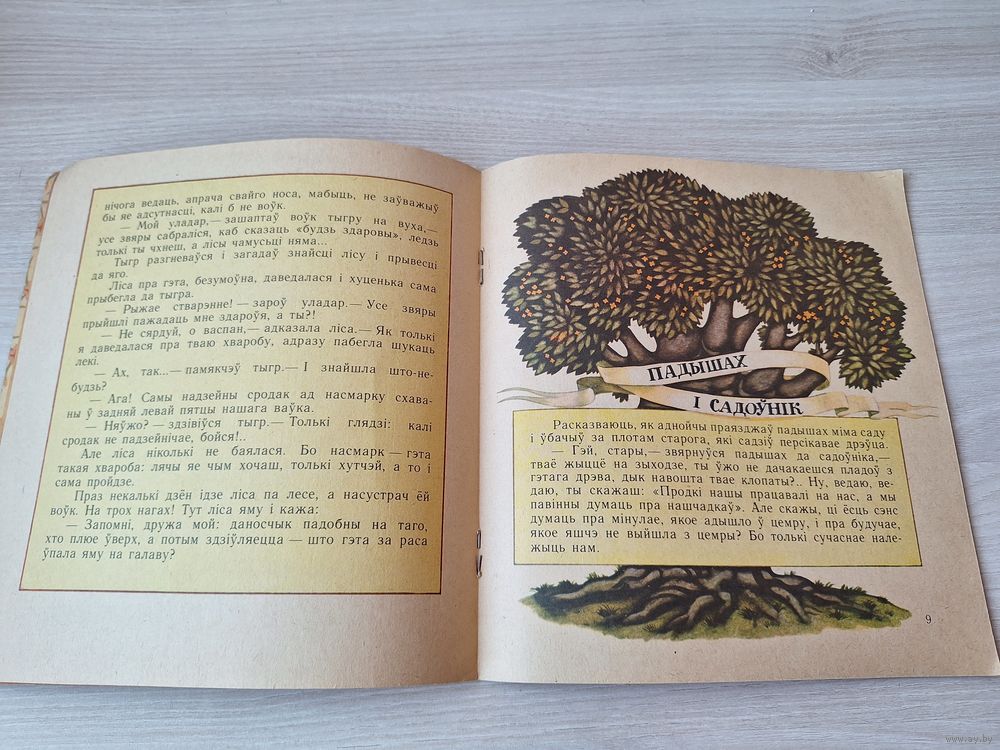 нічога ведаць, апрача свайго носа, мабыць, не заўважыў
бы яе адсутнасці, калі б не воўк.
— Мой уладар,— зашаптаў воўк тыгру на вуха,—
усе звяры сабраліся, каб сказаць «будзь здаровы», ледзь
толькі ты чхнеш, а лісы чамусьці няма...
Тыгр разгневаўся і загадаў знайсці лісу і прывесці
да яго.
Ліса пра гэта, безумоўна, даведалася і хуценька сама
прыбегла да тыгра.
— Рыжае стварэнне! — зароў уладар.— Усе звяры
прыйшлі пажадаць мне здароўя, а ты?!
— Не сярдуй, о васпан,— адказала ліса.— Як толькі
я даведалася пра тваю хваробу, адразу пабегла шукаць
лекі.
— Ах, так...— памякчэў тыгр.— І знайшла што-не-
будзь?
— Ага! Самы надзейны сродак ад насмарку схава-
ны ў задняй левай пятцы нашага ваўка.
— Няўжо? — здзівіўся тыгр.— Толькі глядзі: калі
сродак не падзейнічае, бойся!..
Але ліса ніколькі не баялася. Бо насмарк — гэта
такая хвароба: лячы яе чым хочаш, толькі хутчэй, а то і
сама пройдзе.
Праз некалькі дзён ідзе ліса па лесе, а насустрач ёй
воўк. На трох нагах! Тут ліса яму і кажа:
— Запомні, дружа мой: даносчык падобны на таго,
хто плюе ўверх, а потым здзіўляецца — што гэта за раса
ўпала яму на галаву?
ПАДЫШАХ
І САДОЎНІК
Расказваюць, як аднойчы праязджаў падышах міма саду
і ўбачыў за плотам старога, які садзіў персікавае дрэўца.
— Гэй, стары,— звярнуўся падышах да садоўніка,—
тваё жыццё на зыходзе, ты ўжо не дачакаешся пладоў з
гэтага дрэва, дык навошта твае клопаты?.. Ну, ведаю, ве-
даю, ты скажаш: «Продкі нашы працавалі на нас, а мы
павінны думаць пра нашчадкаў». Але скажы, ці ёсць сэнс
думаць пра мінулае, якое адышло ў цемру, і пра будучае,
якое яшчэ не выйшла з цемры? Бо толькі сучаснае нале-
жыць нам.
9
www.ay.by